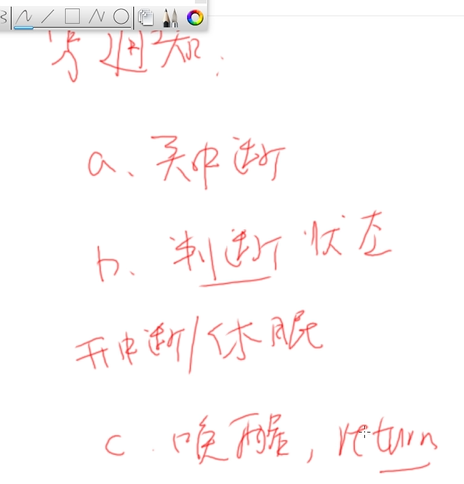 等通知:
a、关中断
b、判断 状态
开中断/休眠
c. 唤醒, return